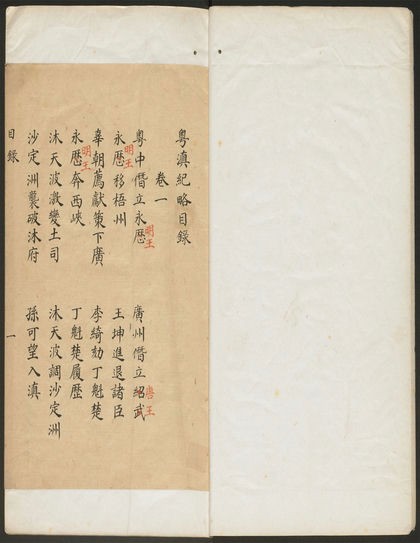 粵滇紀略目錄
卷一
粵中僭立永歷
明王
廣州僭立紹武
唐王
永歷移梧州
明王
王坤進退諸臣
辜朝薦獻策下廣
李綺劾丁魁楚
永歷奔西峽
明王
丁魁楚履歷
沐天波激變土司
沐天波調沙定洲
沙定洲襲破沐府
孫可望入滇
目錄
一